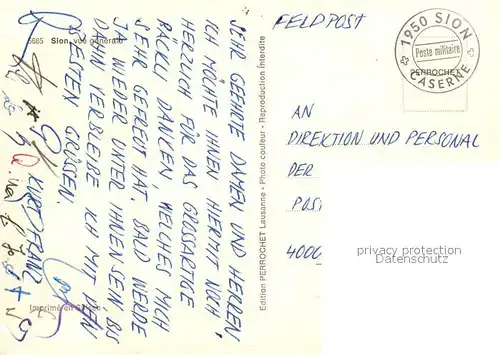 5685 Sion, vue générale
SEHR GEEHRTE DAMEN UND HERREN
ICH MÖCHTE IHNEN HIERMIT NOCH
HERZLICH FÜR DAS GROSSARTIGE
PÄCKLI DANKEN, WELCHES MICH
SEHR GEFREUT HAT. BALD WERDE
JA WIEDER UNTER IHNEN SEIN BIS
DANN VERBLEIBE ICH MIT DEN
BESTEN GRÜSSEN.
KURT FRANZ
Imprimé en
Edition PERROCHET Lausanne - Photo couleur - Reproduction interdite
FELDPOST
1950 SION
Poste militaire
CASERNE
PERROCHET
AN
DIREKTION UND PERSONAL
DER
POST
4000
privacy protection
Datenschutz